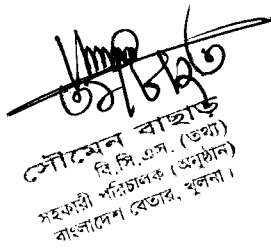 সৌমেন বাছাড়
বি.সি.এস. (তথ্য)
সহকারী পরিচালক (অনুষ্ঠান)
বাংলাদেশ বেতার, খুলনা।